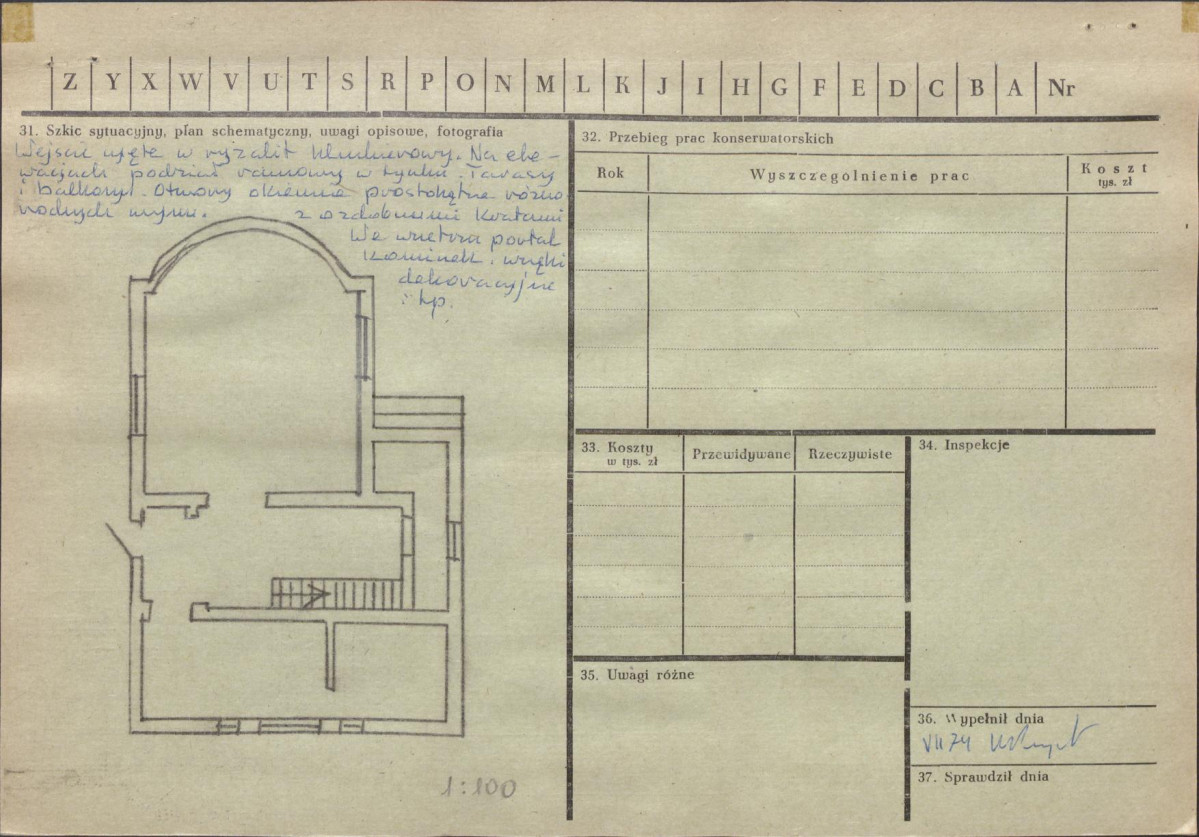 Z Y X W V U T S R P O N M L K J I H G F E D C B A Nr
31. Szkic sytuacyjny, plan schematyczny, uwagi opisowe, fotografia
Wejście ujęte w ryzalit klinkierowy. Na ele-
wacjach podział ramowy w tynku. Tarasy
i balkony. Otwory okienne prostokątne różno
rodnych
z ozdobnymi kratami
We wnętrzu portal
kominek, wnęki
dekoracyjne
i tp.
1:100
32. Przebieg prac konserwatorskich
Rok
Wyszczególnienie prac
Koszt
tys. zł
33. Koszty
w tys. zł
Przewidywane
Rzeczywiste
34. Inspekcje
35. Uwagi różne
36. Wypełnił dnia
VII 74
37. Sprawdził dnia